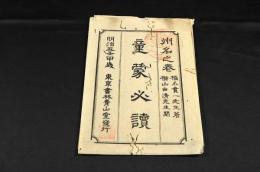 州名之巻
橋爪貫一先生著
横山由清先生閲
童蒙必讀
明治五壬申歳
東京書林青山堂發行